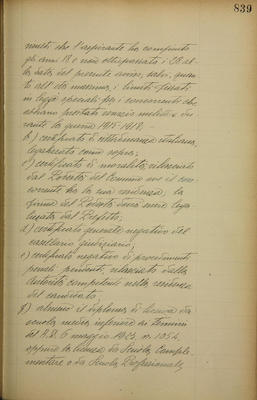 839
risulti che l'aspirante ha compiuto
gli anni 18 e non oltrepassato i
data del presente avviso, salvi, quan
to all'età massima, i limiti fissati
in leggi speciali per i concorrenti che
abbiano prestato servizio militare du
rante la guerra 1915-1918. -
b) certificato di cittadinanza italiana,
legalizzato come sopra;
c) certificato di moralità, rilasciato
dal Podestà del Comune ove il con
corrente ha la sua residenza, la
firma del Podestà dovrà essere lega
lizzata dal Prefetto;
d) certificato generale negativo del
casellario giudiziario;
e) certificato negativo di procedimenti
penali pendenti, rilasciato dalla
autorità competente nella residenza
del candidato;
f) almeno il diploma di licenza da
scuola media inferiore ai termini
del R.D. 6 maggio 1923, n. 1054,
oppure la licenza da Scuola Comple
mentare o da Scuola Professionale,